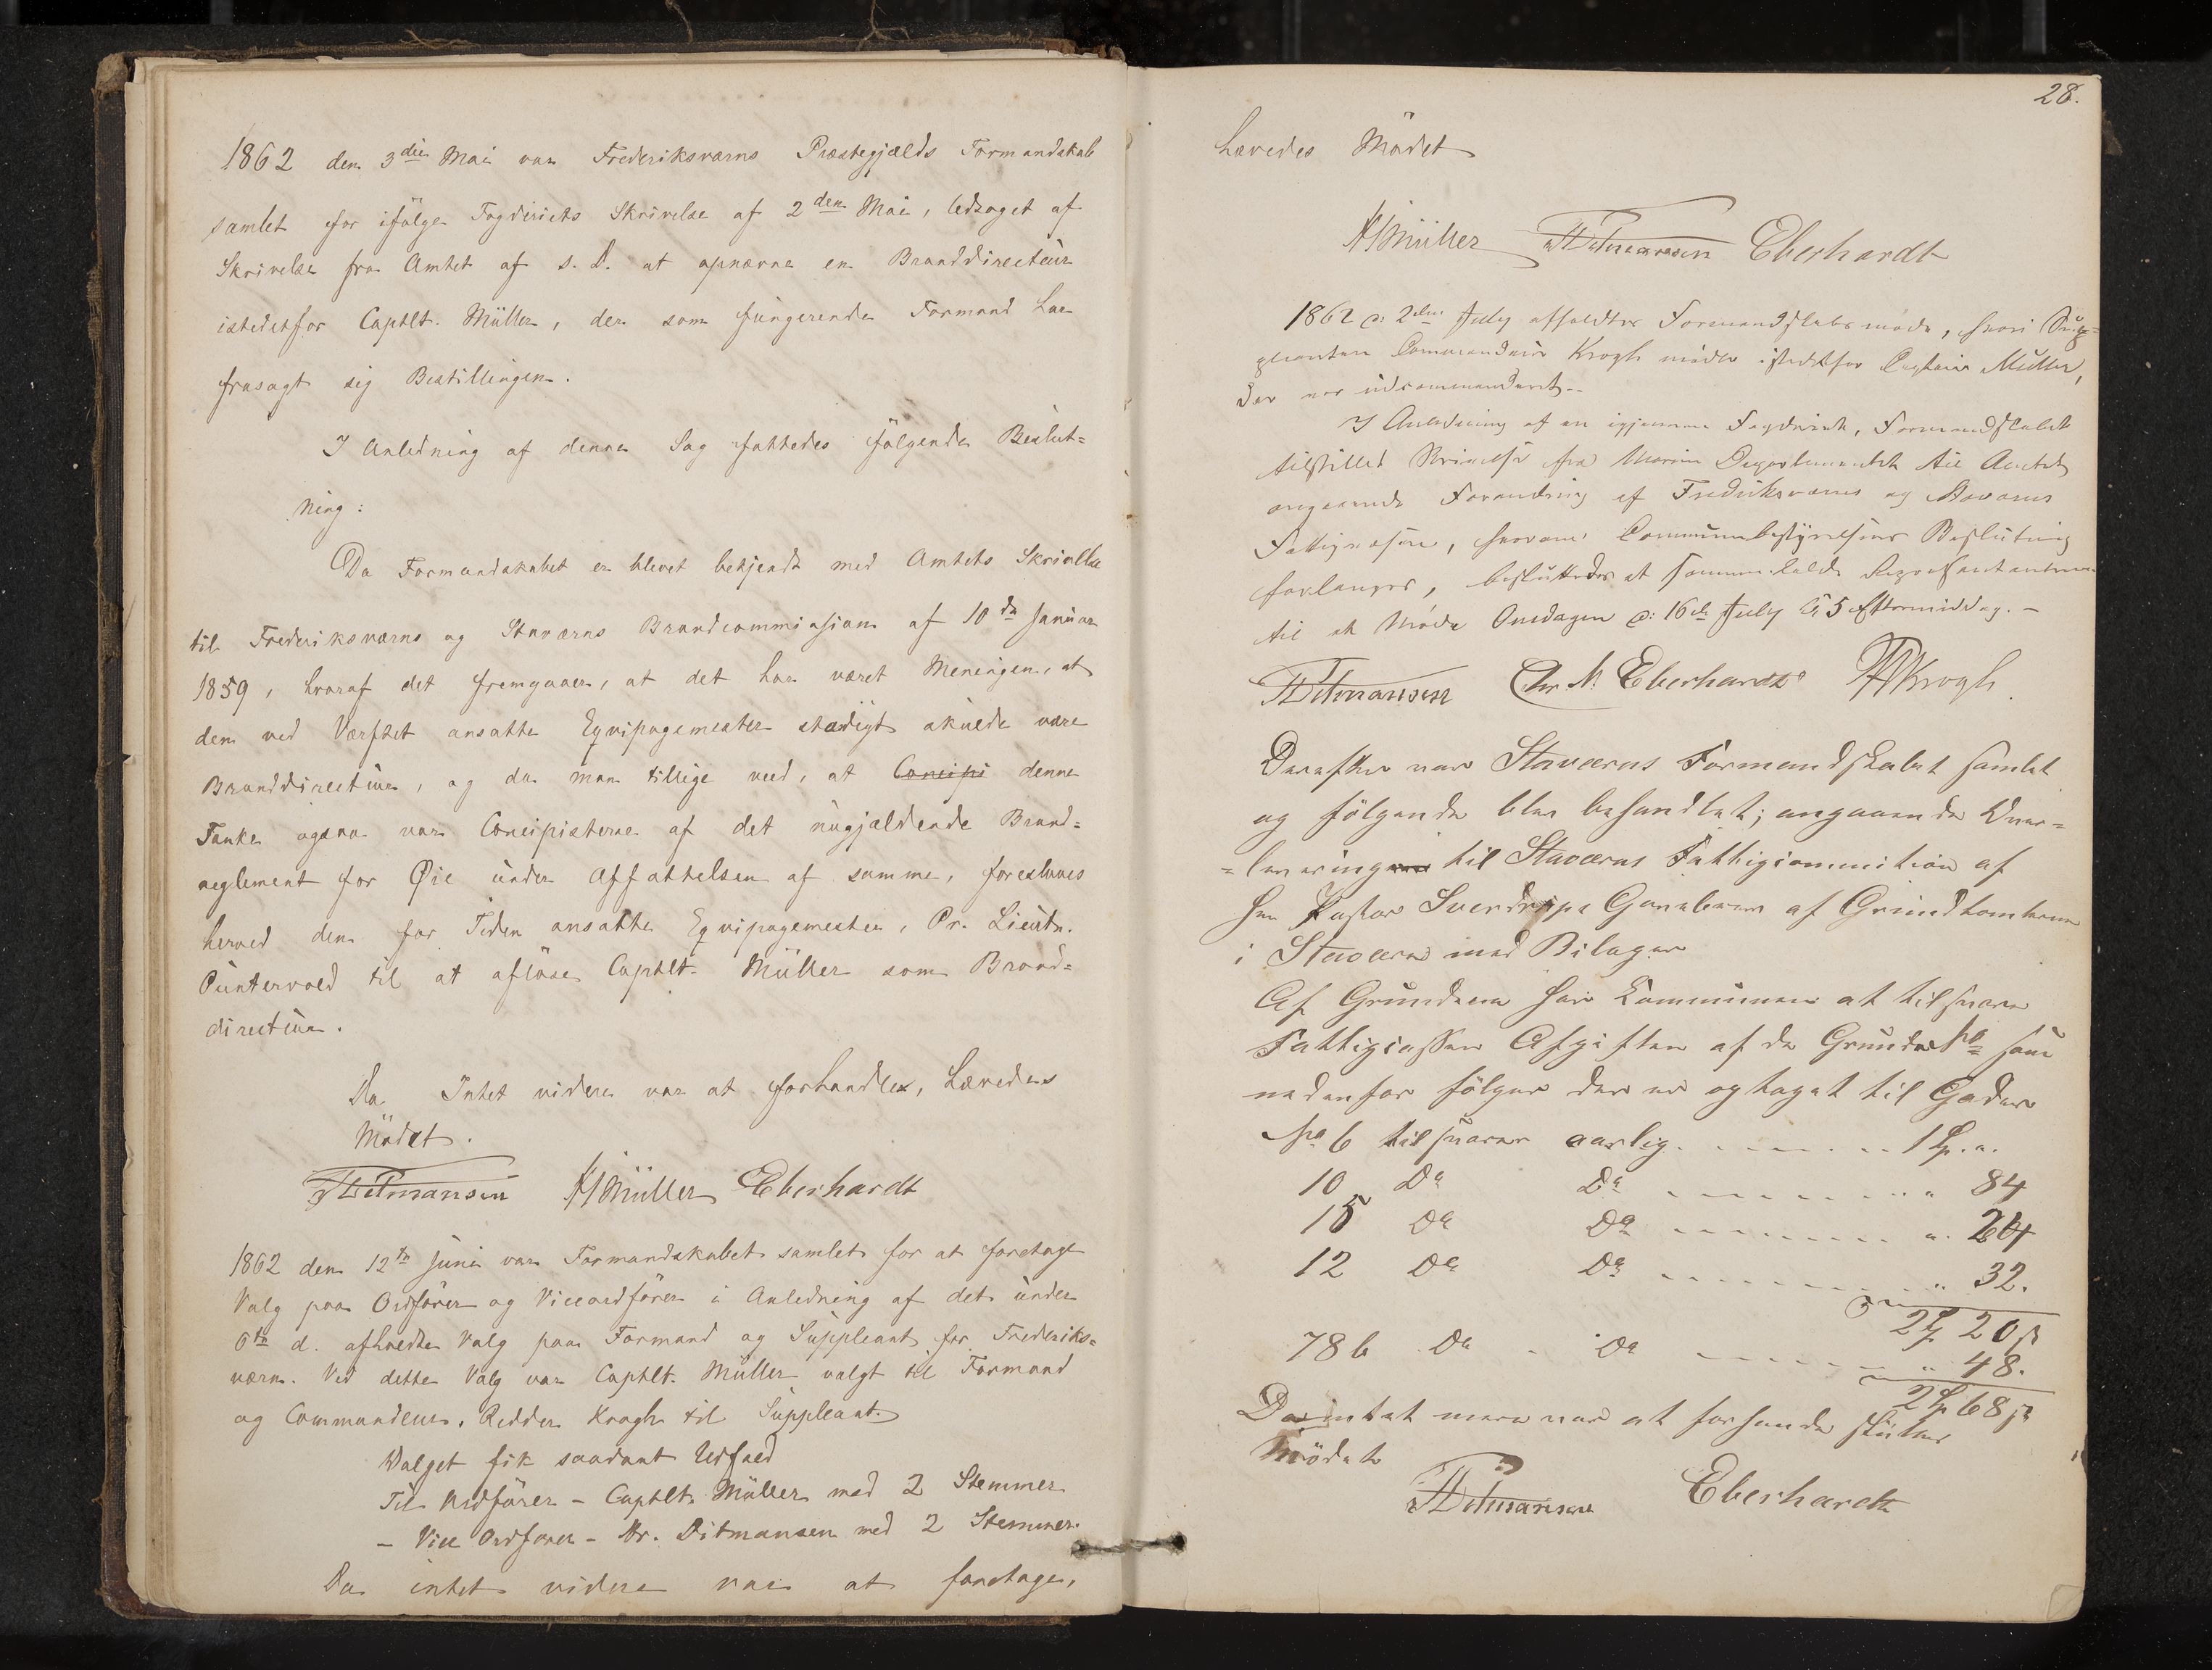 1862 den 3die Mai var Frederiksværns Præstegjælds Formandskab
samlet for ifölge Fogderiets Skrivelse af 2den Mai, ledsaget af
Skrivelse fra Amtet af s. D. at opnævne en Branddirecteur
istedetfor Captlt. Müller, der som fungerende Formand har
frasagt sig Bestillingen.
I Anledning af denne Sag fattedes fölgende Beslut=
ning:
Da Formandskabet er blevet bekjendt med Amtets Skrivelse
til Frederiksværns og Staværns Brandcommission af 10de Januar
1859, hvoraf det fremgaaer, at det har været Meningen, at
den ved Værftet ansatte Eqvipagemester stadigt skulde være
Branddirecteur, og da man tillige veed, at Concipi denne
Tanke ogsaa var Concipisterne af det nugjældende Brand=
reglement for Öie under Affattelsen af samme, foreslaaes
herved den for Tiden ansatte Eqvipagemester, Pr. Lieutn.
Puntervold til at aflöse Captlt. Müller som Brand=
directeur.
Da Intet videre var at forhandles, hævedes
Mödet.
Ditmansen HJMüller Eberhardt
1862 den 12te Juni var Formandskabet samlet for at foretage
Valg paa Ordförer og Viceordförer i Anledning af det under
6te d. afholdte Valg paa Formand og Suppleant for Frederiks=
værn. Ved dette Valg var Captlt. Müller valgt til Formand
og Commandeur, Ridder Krogh til Suppleant.
Valget fik saadant Udfald
Til Ordförer - Captlt. Müller med 2 Stemmer
- Vice Ordförer - Hr. Ditmansen med 2 Stemmer.
Da intet videre var at foretage,
28.
hævedes Mödet
HJMüller Ditmansen Eberhardt
1862 d: 2den July afholdtes Formandskabsmöde, hvori Sup=
pleanten Commandeur Krogh mödte istedetfor Captain Müller,
der var udcommanderet.-
I Anledning af en igjennem Fogderiet, Formandskabet
tilstillet Skrivelse fra Marine Departementet til Amtet
angaaende Forandring af Frederiksværns og Staværns
Fattigvæsen, hvorom Communebestyrelsens Beslutning
forlanges, besluttedes at sammenkalde Repræsentanterne
til et Möde Onsdagen d: 16de July Kl 5 Eftermiddag. -
Ditmansen Chr. N. Eberhardt Krogh
Derefter var Staværns Formandskabet samlet
og fölgende blev behandlet; angaaende Over=
=leveringen til Staværns Fattigcommition af
Her Pastor Sverdrups Gavebrev af Grundtomterne
i Staværn med Bilager
Af Grundene har Kommunen at tilsvare
Fattigcassen Afgiften af de Grunde No som
nedenfor fölger der er optaget til Gader
No 6 tilsvarer aarlig . . . . . . . 1 Sp. "
10 Do Do . . . . . . . " 84
15 Do Do . . . . . . . " 24
12 Do Do . . . . . . . " 32.
2 Sp 20 s
78 b Do - Do . . . . . . . " 48.
2 Sp 68 s
Da intet mere var at forhandle sluttes
Mödet
Ditmansen Eberhardt